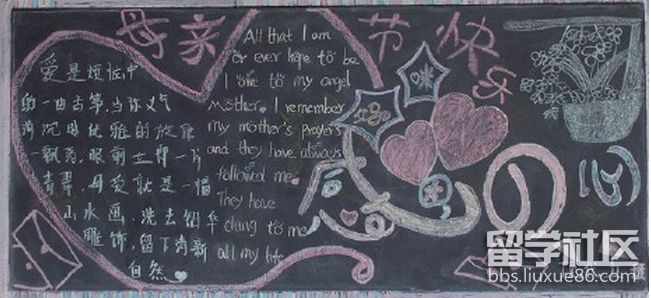 母亲节快乐
爱是烦恼中
的一曲古筝,当你义气
消沉时优雅的旋律
一飘荡,眼前立即一片
青翠,母爱就是一幅
山水画,洗去铅华
雕饰,留下清新
自然
All that I am
or ever hope to be
I owe to my angel
Mother. I remember
my mother's prayers
and they have always
followed me.
They have
clung to me
all my life
感恩の心
留学社区
bbs.liuxue86.com